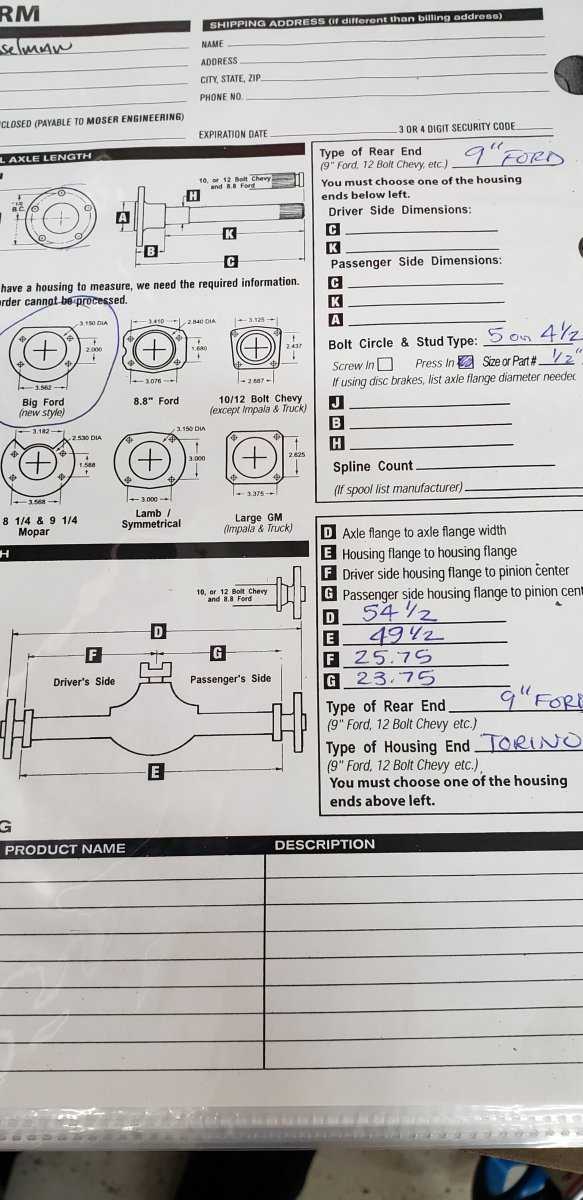 RM
SHIPPING ADDRESS (if different than billing address)
selman
NAME
ADDRESS
CITY, STATE, ZIP
PHONE NO.
CLOSED (PAYABLE TO MOSER ENGINEERING)
EXPIRATION DATE
3 OR 4 DIGIT SECURITY CODE
L AXLE LENGTH
B.C.
10, or 12 Bolt Chevy
and 8.8 Ford
H
A
B
K
C
have a housing to measure, we need the required information.
order cannot be processed.
3.150 DIA
2.000
3.562
Big Ford
(new style)
3.410
2.840 DIA
1.680
3.076
8.8" Ford
3.125
2.437
2.687
10/12 Bolt Chevy
(except Impala & Truck)
3.182
2.530 DIA
1.588
3.568
8 1/4 & 9 1/4
Mopar
3.150 DIA
3.000
3.000
Lamb /
Symmetrical
2.625
3.375
Large GM
(Impala & Truck)
Type of Rear End 9" FORD
(9" Ford, 12 Bolt Chevy, etc.)
You must choose one of the housing
ends below left.
Driver Side Dimensions:
C
K
Passenger Side Dimensions:
C
K
A
Bolt Circle & Stud Type: 5 on 4 1/2
Screw In Press In Size or Part # 1/2"
If using disc brakes, list axle flange diameter needed
J
B
H
Spline Count
(If spool list manufacturer)
H
10, or 12 Bolt Chevy
and 8.8 Ford
D
F
G
Driver's Side
Passenger's Side
E
D Axle flange to axle flange width
E Housing flange to housing flange
F Driver side housing flange to pinion center
G Passenger side housing flange to pinion cent
D 54 1/2
E 49 1/2
F 25.75
G 23.75
Type of Rear End 9" FORD
(9" Ford, 12 Bolt Chevy etc.)
Type of Housing End TORINO
(9" Ford, 12 Bolt Chevy etc.)
You must choose one of the housing
ends above left.
G
PRODUCT NAME
DESCRIPTION